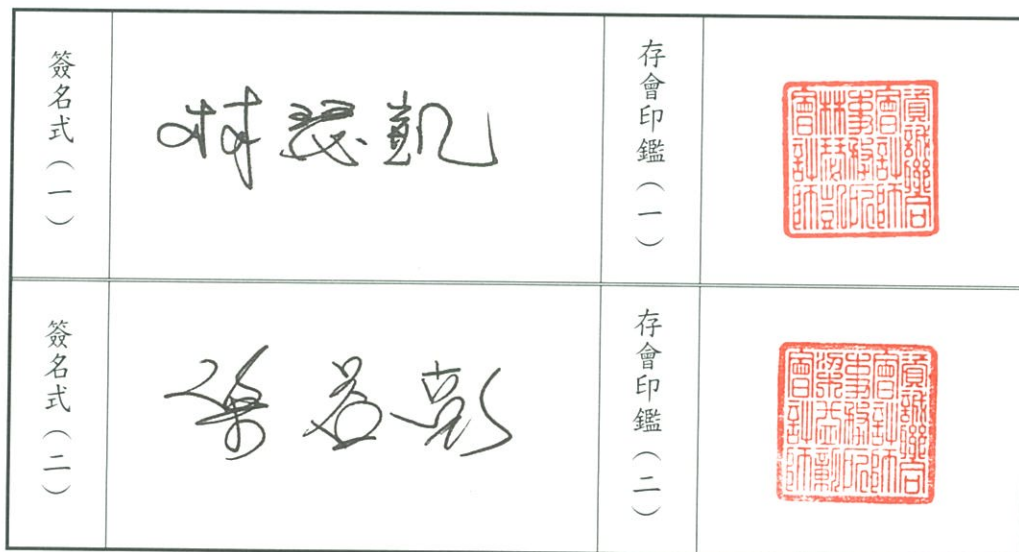 簽名式（一）
林瑟凱
存會印鑑（一）
資誠聯合
會計師
事務所
林瑟凱
會計師
簽名式（二）
梁益彰
存會印鑑（二）
資誠聯合
會計師
事務所
梁益彰
會計師